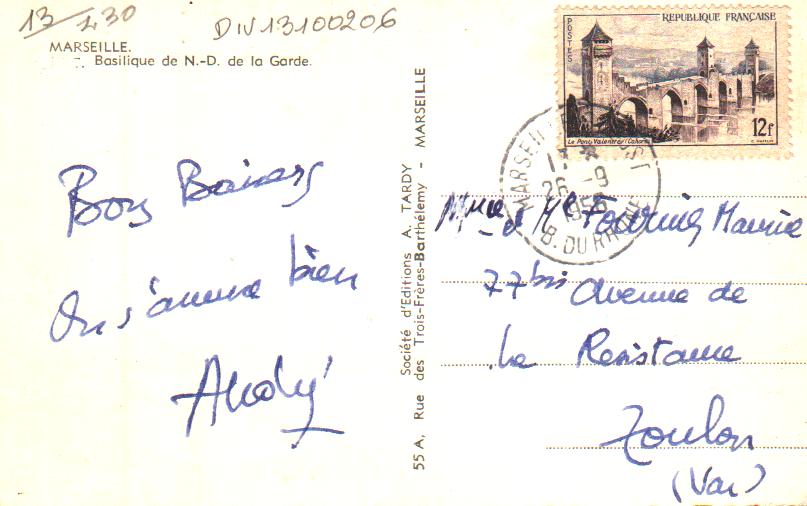 13
430
DIV13100206
MARSEILLE.
Basilique de N.-D. de la Garde.
Bons Baisers
On s'amuse bien
Société d'Editions A. TARDY
55 A, Rue des Trois-Frères-Barthélemy - MARSEILLE
REPUBLIQUE FRANÇAISE
POSTES
12f
Le Pont Valentré (Cahors)
MARSEILLE
26 -9
1956
B. DU RHONE
Mme et Mr Fournier Maurice
77 bis Avenue de
La Resistance
Toulon
(Var)